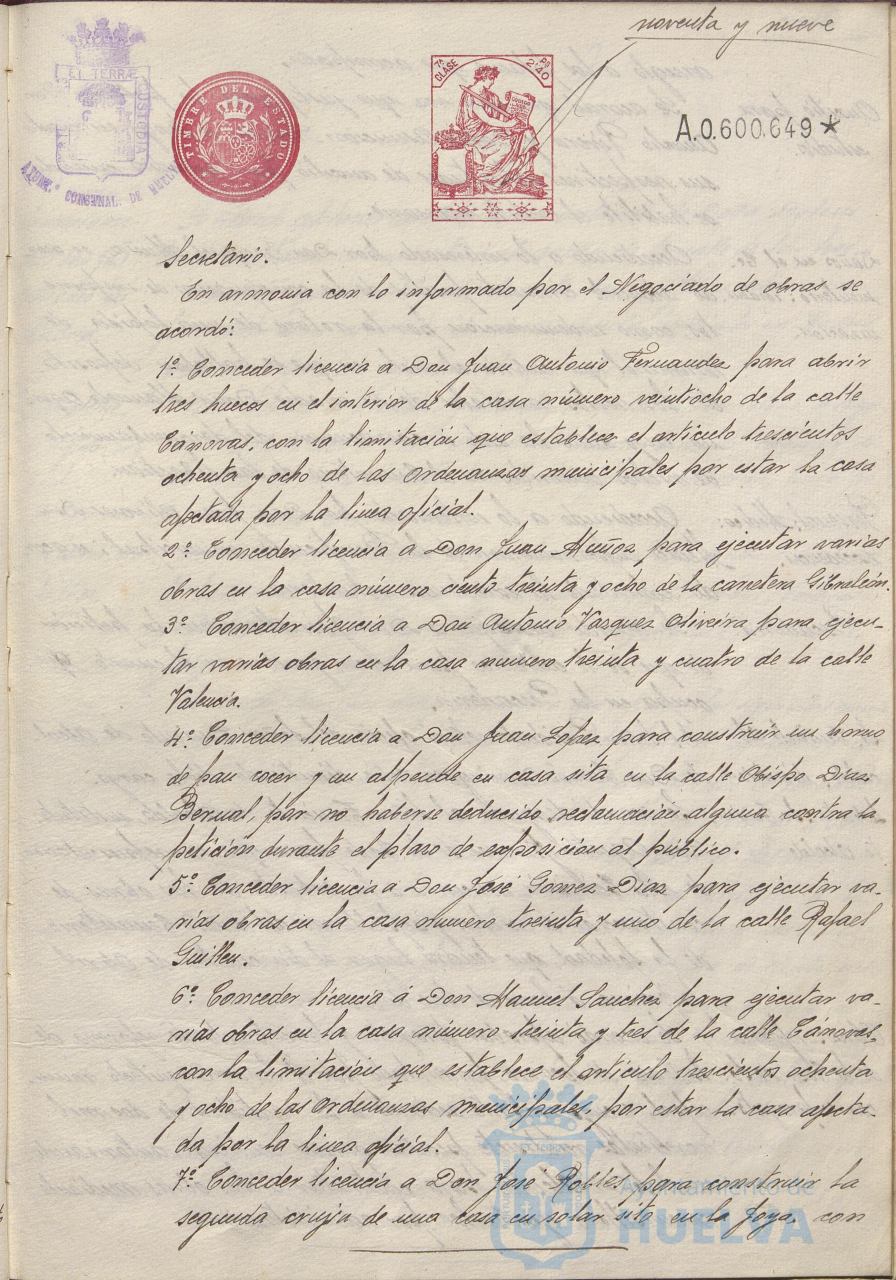 noventa y nueve
EL TERRÆ CUSTODIA
TIMBRE DEL ESTADO
7ª CLASE
Ps 2'40
A.0.600.649*
Secretario.
En armonia con lo informado por el Negociado de obras se
acordó:
1º Conceder licencia a Don Juan Antonio Fernandez para abrir
tres huecos en el interior de la casa número veintiocho de la calle
Cánovas, con la limitación que establece el artículo trescientos
ochenta y ocho de las Ordenanzas municipales por estar la casa
afectada por la linea oficial.
2º Conceder licencia a Don Juan Muñoz para ejecutar varias
obras en la casa número ciento treinta y ocho de la carretera Gibraleón.
3º Conceder licencia a Don Antonio Vazquez Oliveira para ejecu-
tar varias obras en la casa numero treinta y cuatro de la calle
Valencia.
4º Conceder licencia a Don Juan Lopez para construir un horno
de pan cocer y un alpende en casa sita en la calle Obispo Diaz
Bernal, por no haberse deducido reclamación alguna contra la
petición durante el plazo de exposición al público.
5º Conceder licencia a Don José Gomez Diaz para ejecutar va-
rias obras en la casa numero treinta y uno de la calle Rafael
Guillen.
6º Conceder licencia á Don Manuel Sanchez para ejecutar va-
rias obras en la casa número treinta y tres de la calle Cánovas,
con la limitación que establece el artículo trescientos ochenta
y ocho de las Ordenanzas municipales, por estar la casa afecta-
da por la linea oficial.
7º Conceder licencia a Don José Robles para construir la
segunda crujia de una casa en solar sito en la Joya, con
Ayuntamiento de
HUELVA